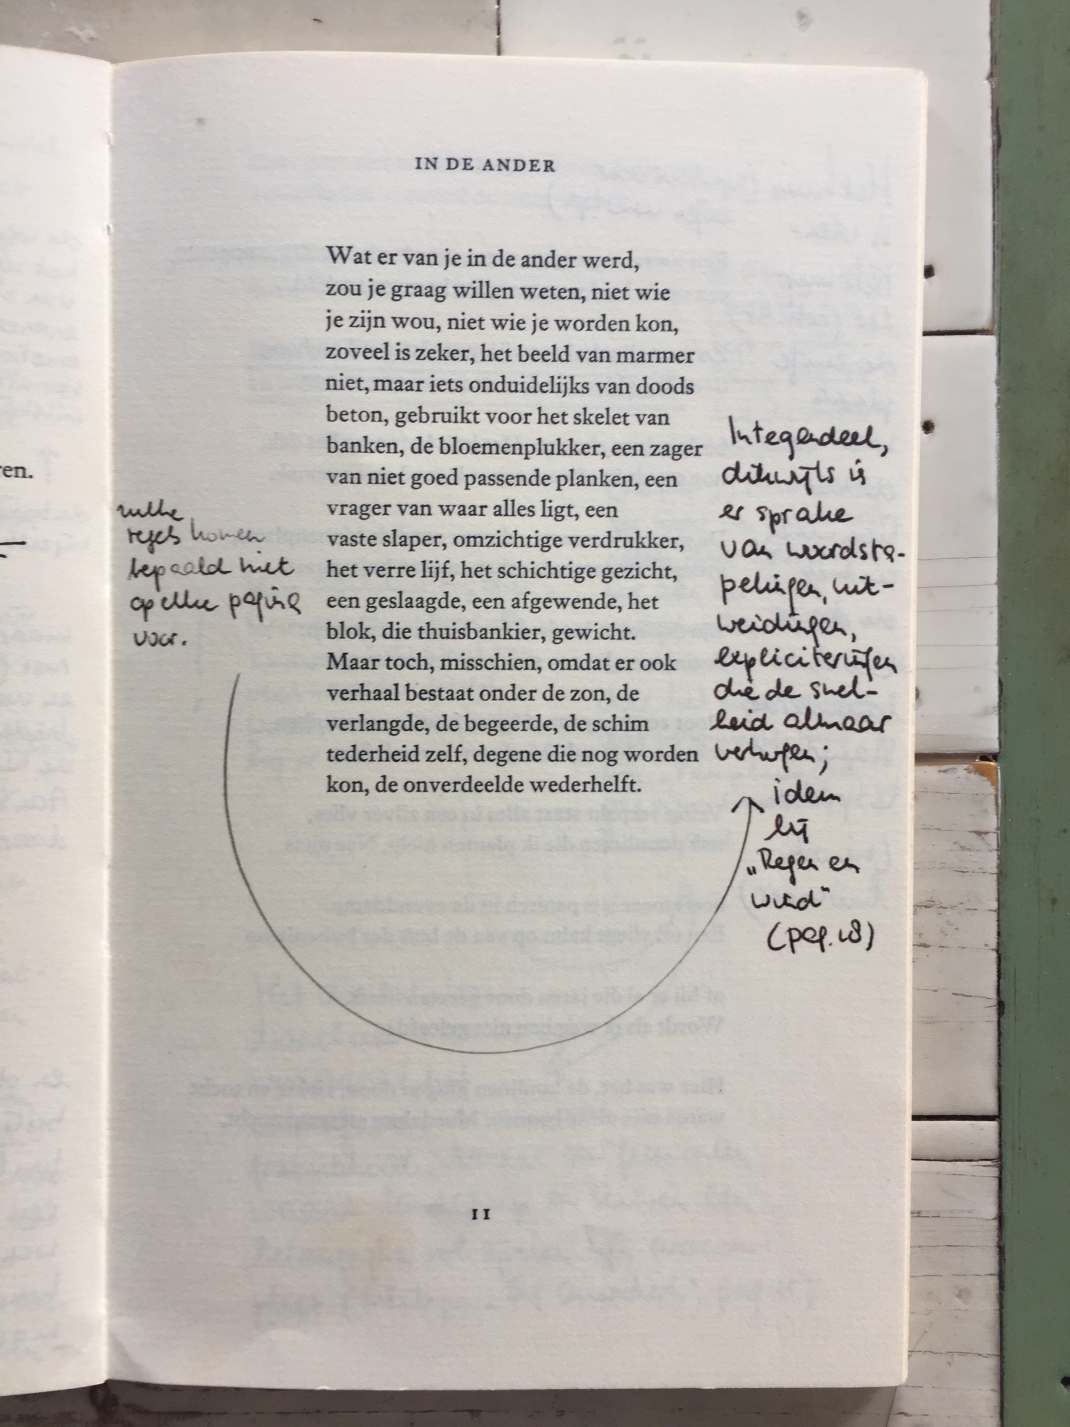 IN DE ANDER
Wat er van je in de ander werd,
zou je graag willen weten, niet wie
je zijn wou, niet wie je worden kon,
zoveel is zeker, het beeld van marmer
niet, maar iets onduidelijks van doods
beton, gebruikt voor het skelet van
banken, de bloemenplukker, een zager
van niet goed passende planken, een
vrager van waar alles ligt, een
vaste slaper, omzichtige verdrukker,
het verre lijf, het schichtige gezicht,
een geslaagde, een afgewende, het
blok, die thuisbankier, gewicht.
Maar toch, misschien, omdat er ook
verhaal bestaat onder de zon, de
verlangde, de begeerde, de schim
tederheid zelf, degene die nog worden
kon, de onverdeelde wederhelft.
11
ren.
zulke
regels komen
bepaald niet
op elke pagina
voor.
Integendeel,
dikwijls is
er sprake
van woordsta-
pelingen, uit-
weidingen,
expliciteringen
die de snel-
heid almaar
verhogen;
idem
bij
„Regen en
wind"
(pag. 18)